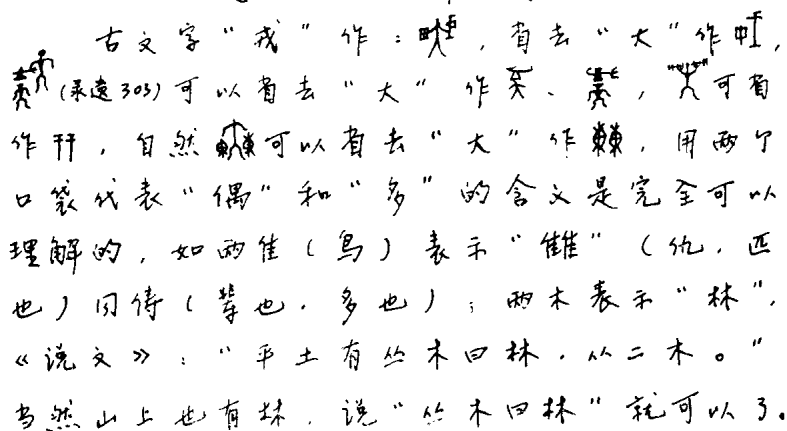 古文字“戎”作：，省去“大”作，
(录遠303)可以省去“大”作、，可省
作，自然可以省去“大”作，用两个
口袋代表“偶”和“多”的含义是完全可以
理解的，如两隹（鸟）表示“雔”（仇，匹
也）同侪（辈也，多也）；两木表示“林”，
《说文》：“平土有丛木曰林，从二木。”
当然山上也有林，说“丛木曰林”就可以了。